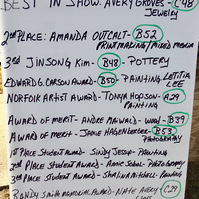 BEST IN SHOW: AVERY GROVES - C48
JEWELRY
2nd PLACE: AMANDA OUTCALT - B52
PRINTMAKING/MIXED MEDIA
3rd JINSONG KIM - B48 - POTTERY
EDWARD G. CARSON AWARD - B50 - PAINTING LETITIA LEE
NORFOLK ARTIST AWARD - TONYA HOPSON - A29
PAINTING
AWARD OF MERIT - ANDRE MAIWALD - WOOD B39
AWARD OF MERIT - JAMIE HAGENBERGER - B53
PHOTOGRAPHY
1st PLACE STUDENT AWARD - SINDY JESUP - PAINTING
2nd PLACE STUDENT AWARD - ANNIE - PHOTOGRAPHY
3rd PLACE STUDENT AWARD - MITCHELL - PAINTING
RANDY SMITH MEMORIAL AWARD - NATE AVERY C29